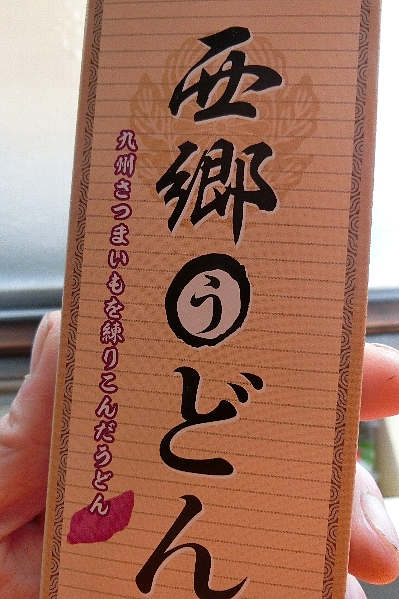 西郷うどん
九州さつまいもを練りこんだうどん